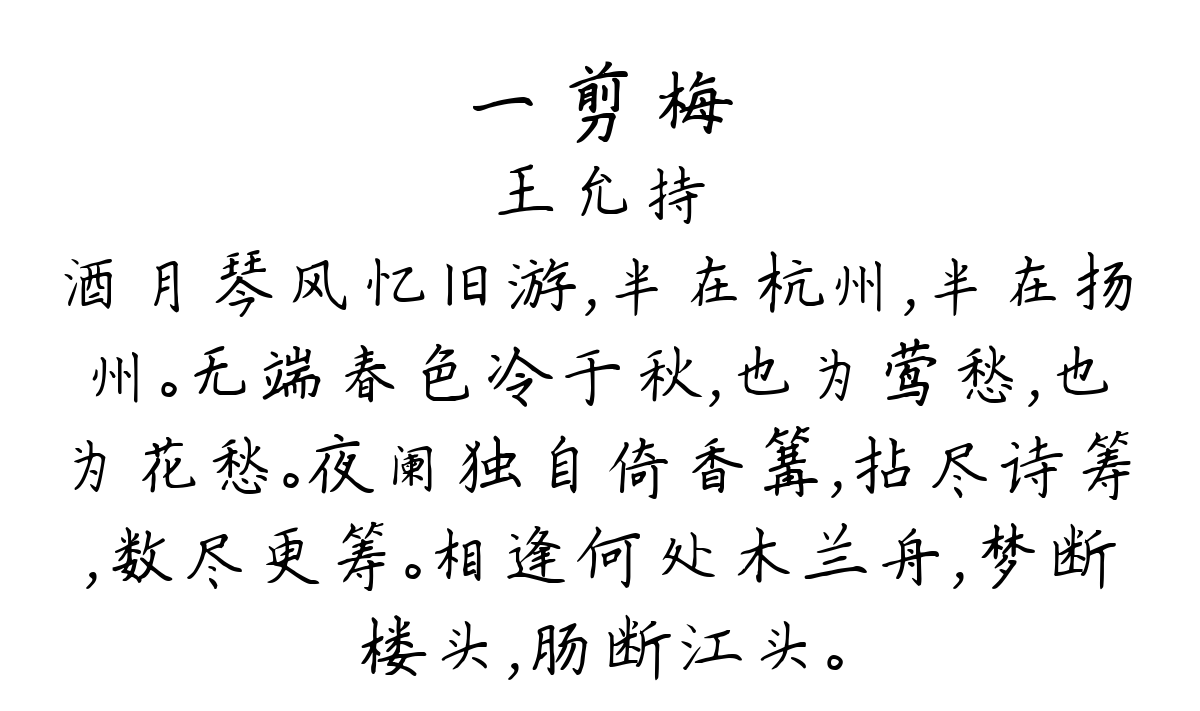 一剪梅
王允持
酒月琴风忆旧游,半在杭州,半在扬
州。无端春色冷于秋,也为莺愁,也
为花愁。夜阑独自倚香篝,拈尽诗筹
,数尽更筹。相逢何处木兰舟,梦断
楼头,肠断江头。